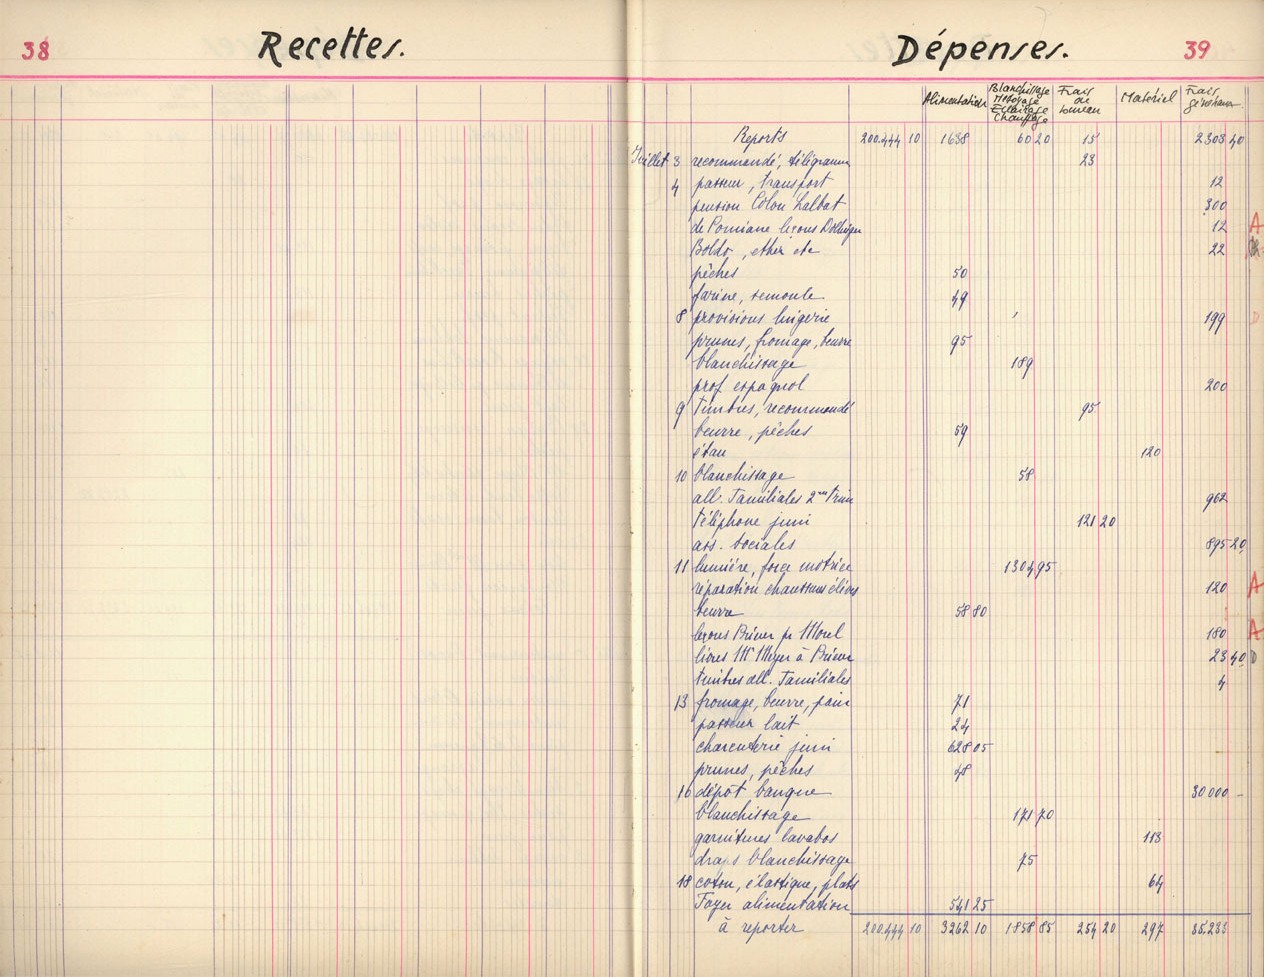 38
Recettes.
Dépenses.
39
Alimentation
Blanchissage
Nettoyage
Eclairage
Chauffage
Frais
de
bureau
Matériel
Frais
généraux
Reports 200.444 10 1638 60 20 15 2308 40
Juillet 3 recommandé, télégramme 23
4 passeur, transport 12
pension Colon Lalbat 300
de Pomiane leçons Döllinger 12 A
Boldo, ether etc 22
pêches 50
farine, semoule 49
8 provisions lingerie 199 D
prunes, fromage, beurre 95
blanchissage 189
prof espagnol 200
9 timbres, recommandé 95
beurre, pêches 59
étau 120
10 blanchissage 58
all. Familiales 2me trim 962
téléphone juin 121 20
ass. sociales 895 20
11 lumière, force motrice 1304 95
réparation chaussures élèves 120 A
beurre 58 80
leçons Brieux pr Morel 180 A
livres Mr Meyer à Brieux 23 40 D
timbres all. Familiales 4
13 fromage, beurre, pain 71
passeur lait 24
charcuterie juin 628 05
prunes, pêches 48
16 dépôt banque 30000 -
blanchissage 171 70
garnitures lavabos 113
draps blanchissage 75
18 coton, élastique, plats 64
Foyer alimentation 541 25
à reporter 200.444 10 3262 10 1858 85 254 20 297 35.233